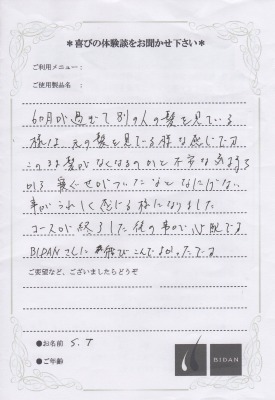 ＊喜びの体験談をお聞かせ下さい＊
ご利用メニュー：
ご使用製品名：
6カ月が過ぎて別の人の髪を見ている
様は元の髪を見ている様な感じです
このまま髪がなくなるのかと不安な気持ち
から寝ぐせがついたなどなにげない
事がうれしく感じる様になりました
コースが終了した後の事が心配です
BIDANさんに飛びこんでよかったです
ご要望など、ございましたらどうぞ
●お名前 S.T
●ご年齢
BIDAN